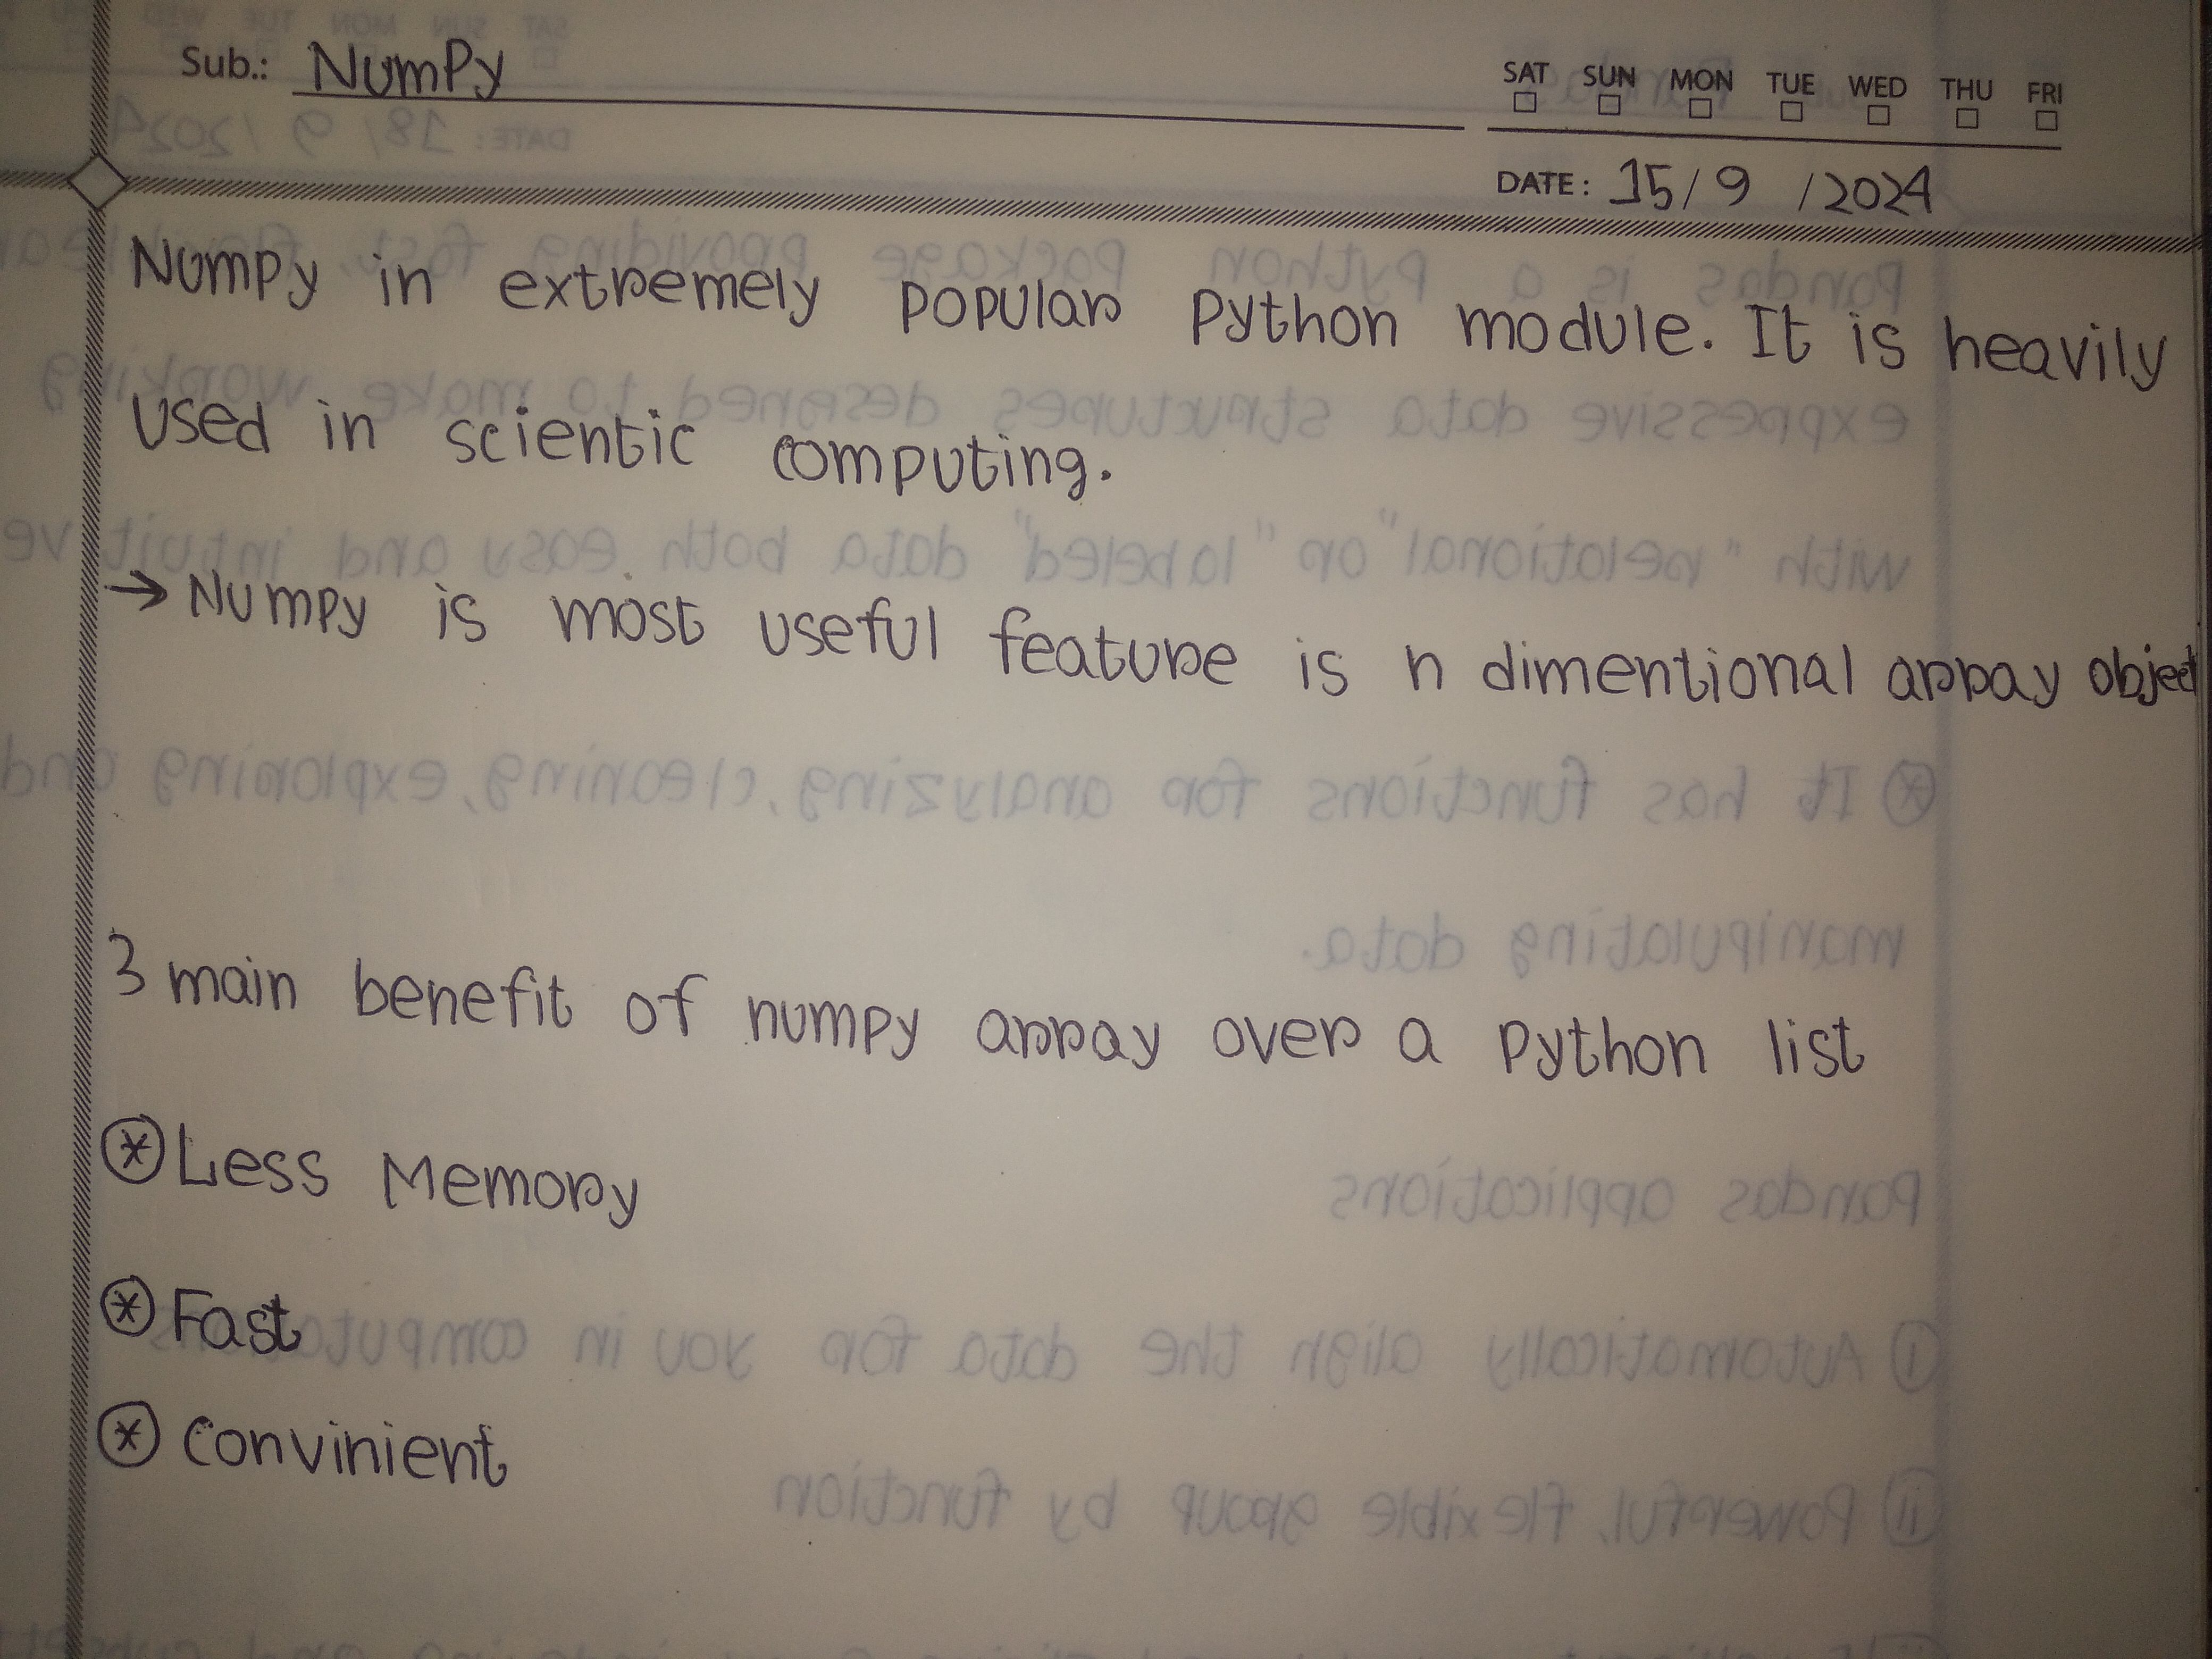 Sub.: NumPy
SAT SUN MON TUE WED THU FRI
DATE: 15/9/2024
Numpy in extremely popular python module. It is heavily
used in scientic computing.
→ Numpy is most useful feature is n dimentional array object
3 main benefit of numpy array over a python list
⊛ Less Memory
⊛ Fast
⊛ convinient